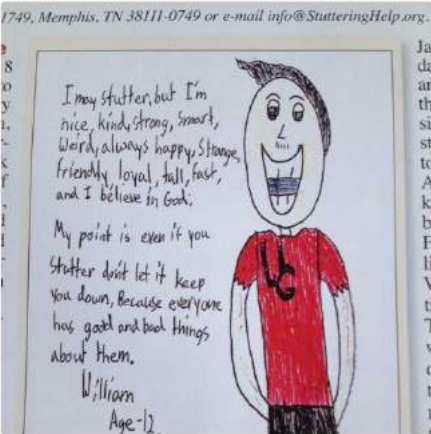 1749, Memphis, TN 38111-0749 or e-mail info@StutteringHelp.org.
I may stutter, but I'm
nice, kind, strong, smart,
Weird, always happy, Strange,
friendly, loyal, tall, fast,
and I believe in God.
My point is even if you
Stutter don't let it keep
You down, Because everyone
has good and bad things
about them.
William
Age-12